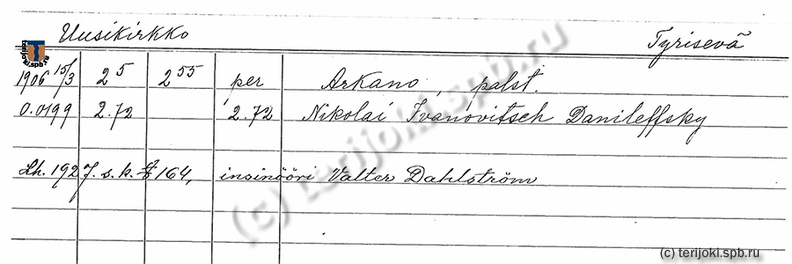 Uusikirkko Tyrisevä
terijoki.spb.ru
1906 15/3 2 5 2 55 per Arkano, palst.
0.0199 2.72 2.72 Nikolai Ivanovitsch Danileffsky
Lh. 1927. s. k. 164, insinööri Valter Dahlström
(c) terijoki.spb.ru
(c) terijoki.spb.ru